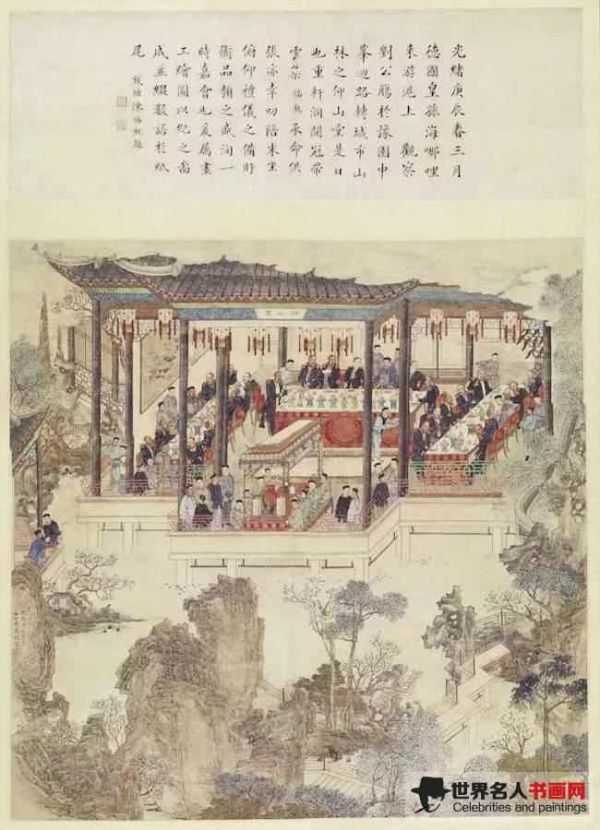 光緒庚辰春三月
德國皇孫海哪哩
来游滬上 觀察
劉公觴於豫園中
峯迴路轉城市山
林之仰山堂是日
也重軒洞開冠帶
雲集福勲承命供
張亦幸切陪末坐
俯仰禮儀之備
品類之盛洵一
時嘉會也爰屬畫
工繪圖以紀之
成並綴數語於紙
尾 陳福勲題
世界名人书画网
Celebrities and painting